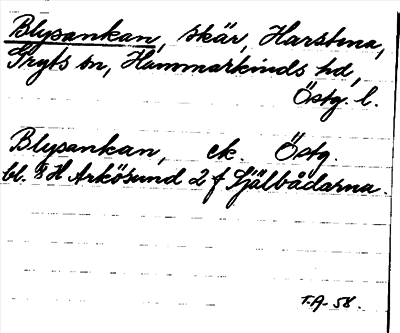 Blysankan, skär, Harstena,
Gryts sn, Hammarkinds hd,
Östg. l.
Blysankan, ek. Östg.
bl. 8H Arkösund 2 f Själbådarna.
F.A-58.